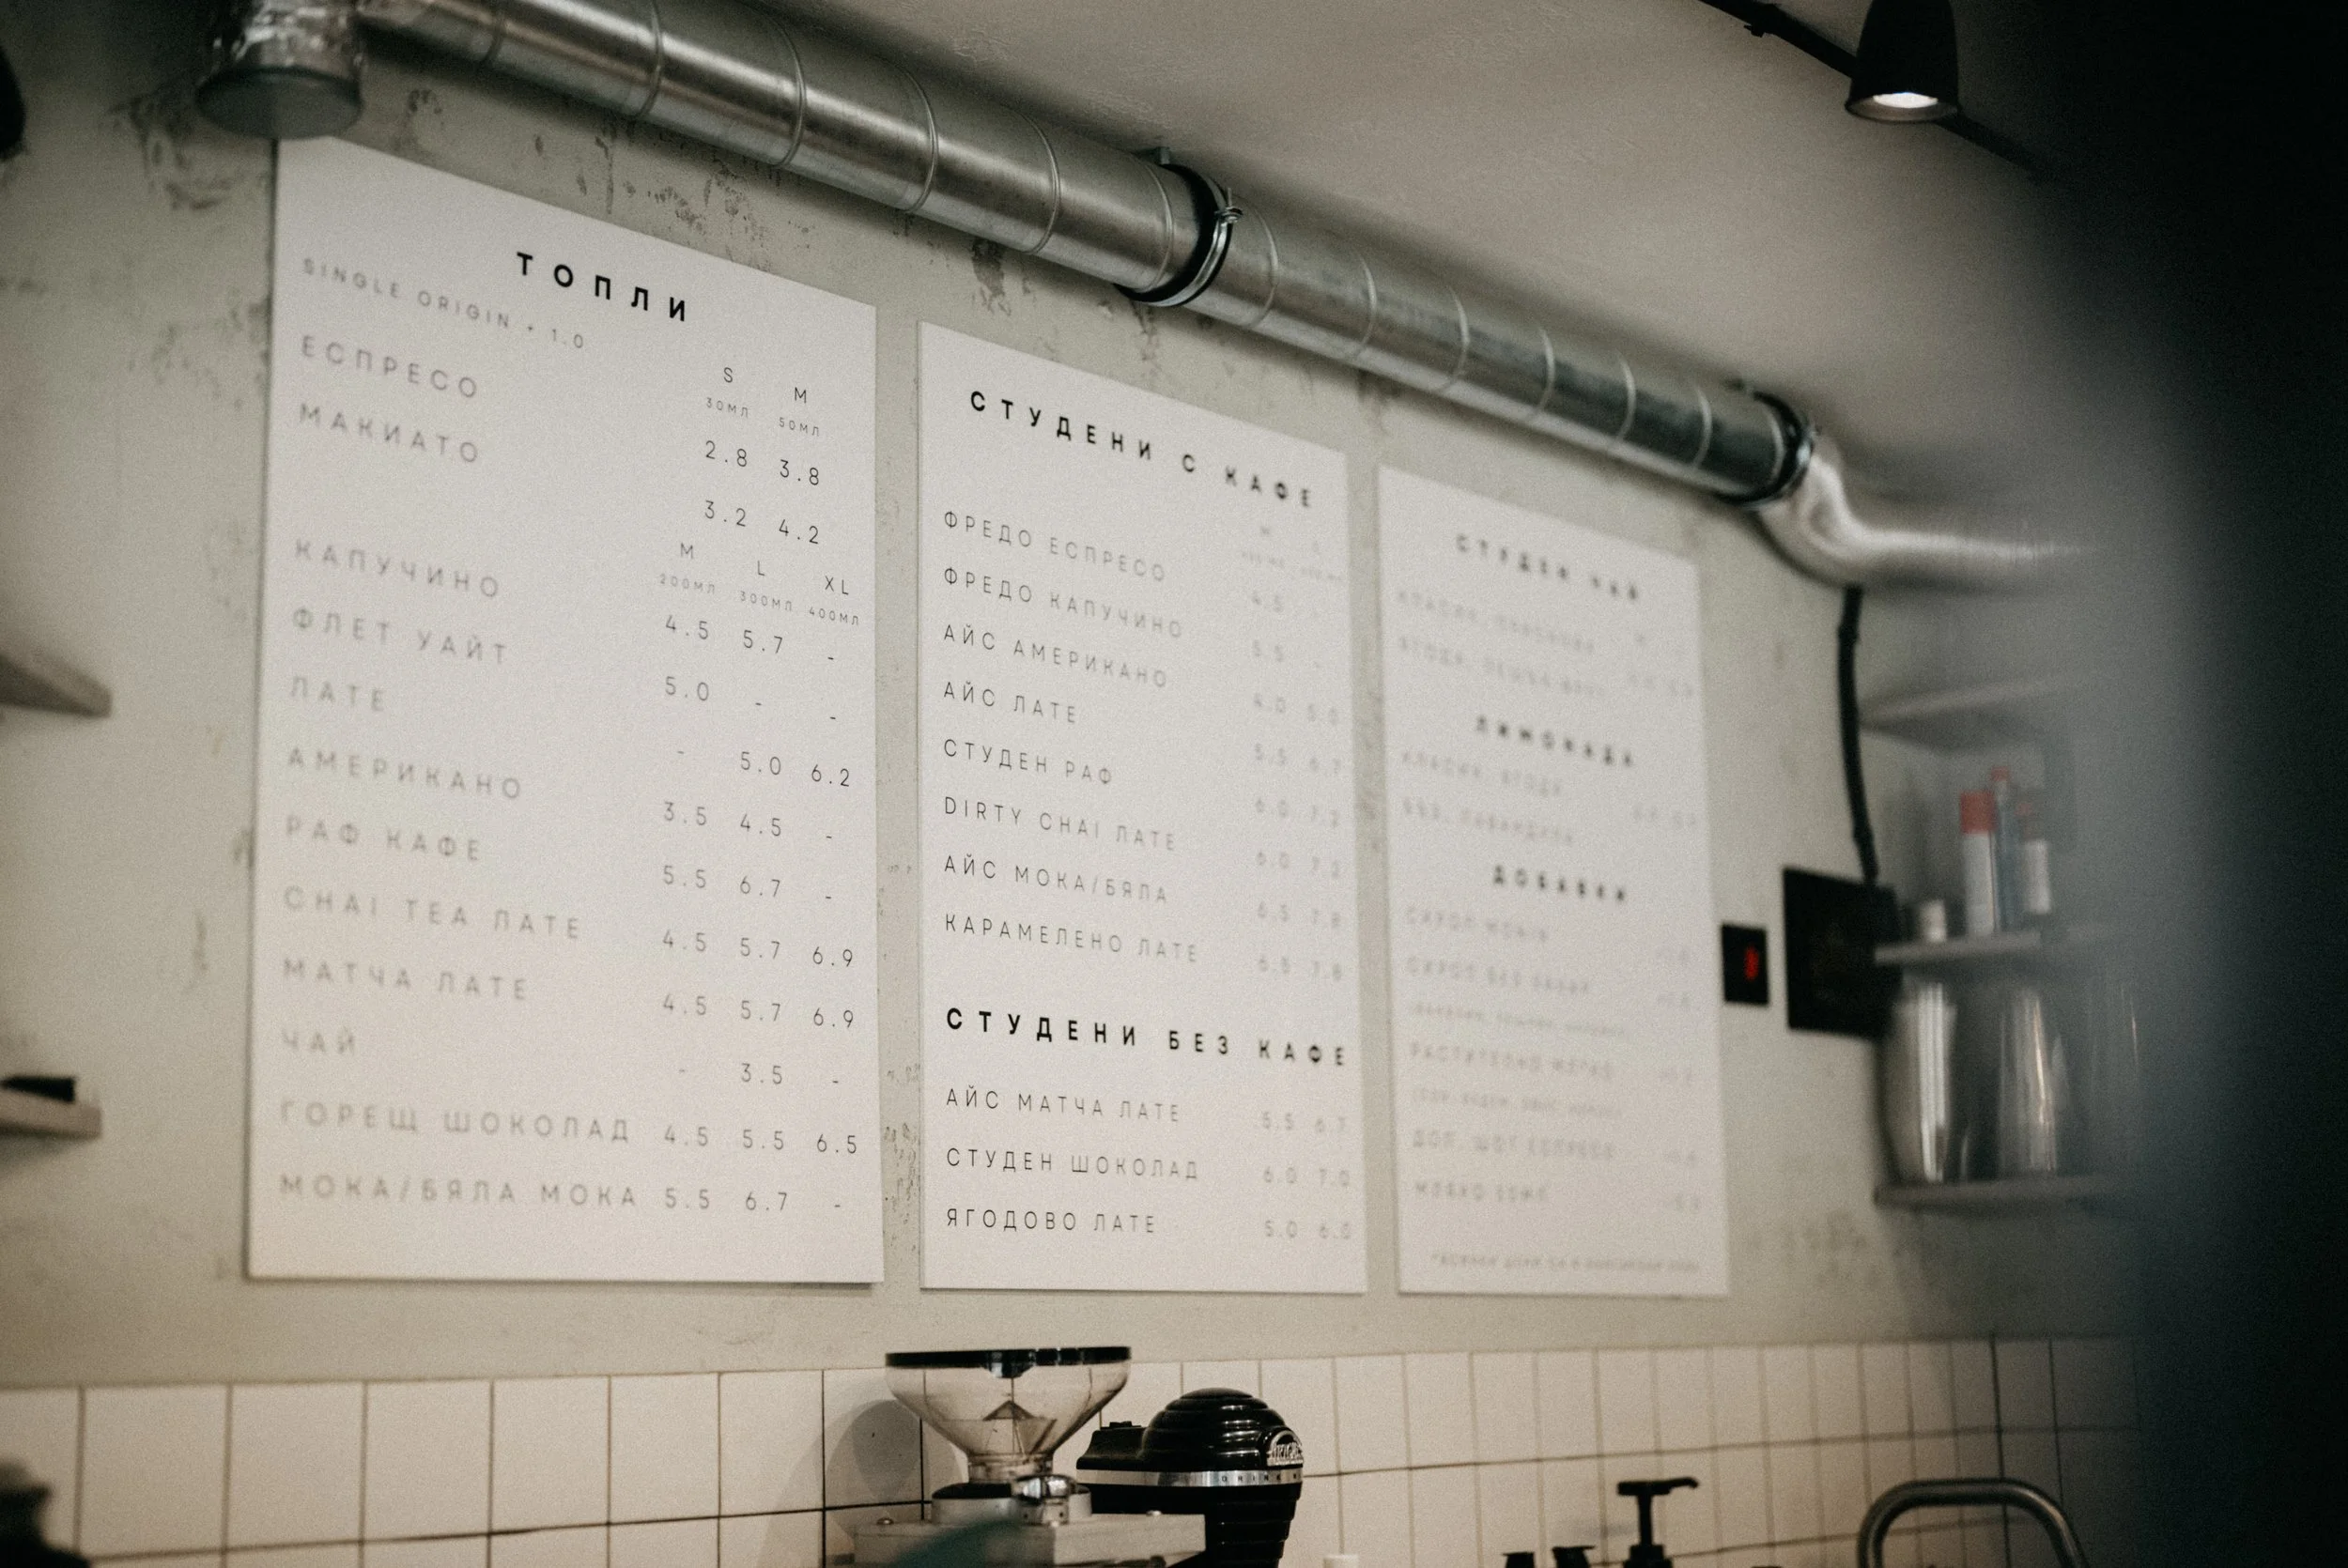 ТОПЛИ
SINGLE ORIGIN + 1.0
S M
30МЛ 50МЛ
ЕСПРЕСО 2.8 3.8
МАКИАТО 3.2 4.2
M L XL
200МЛ 300МЛ 400МЛ
КАПУЧИНО 4.5 5.7 -
ФЛЕТ УАЙТ 5.0 - -
ЛАТЕ - 5.0 6.2
АМЕРИКАНО 3.5 4.5 -
РАФ КАФЕ 5.5 6.7 -
CHAI TEA ЛАТЕ 4.5 5.7 6.9
МАТЧА ЛАТЕ 4.5 5.7 6.9
ЧАЙ - 3.5 -
ГОРЕЩ ШОКОЛАД 4.5 5.5 6.5
МОКА/БЯЛА МОКА 5.5 6.7 -
СТУДЕНИ С КАФЕ
ФРЕДО ЕСПРЕСО 4.5 -
ФРЕДО КАПУЧИНО 5.5 -
АЙС АМЕРИКАНО 4.0 5.0
АЙС ЛАТЕ 5.5 6.7
СТУДЕН РАФ 6.0 7.2
DIRTY CHAI ЛАТЕ 6.0 7.2
АЙС МОКА/БЯЛА 6.5 7.8
КАРАМЕЛЕНО ЛАТЕ 6.5 7.8
СТУДЕНИ БЕЗ КАФЕ
АЙС МАТЧА ЛАТЕ 5.5 6.7
СТУДЕН ШОКОЛАД 6.0 7.0
ЯГОДОВО ЛАТЕ 5.0 6.0
СТУДЕН ЧАЙ
ЛИМОНАДА
КЛАСИК, ЯГОДИ
БЪЗ, ЛАВАНДУЛА
ДОБАВКИ
СИРОП
СИРОП БЕЗ ЗАХАР
РАСТИТЕЛНО МЛЯКО
ДОП. ШОТ ЕСПРЕСО
МЛЯКО